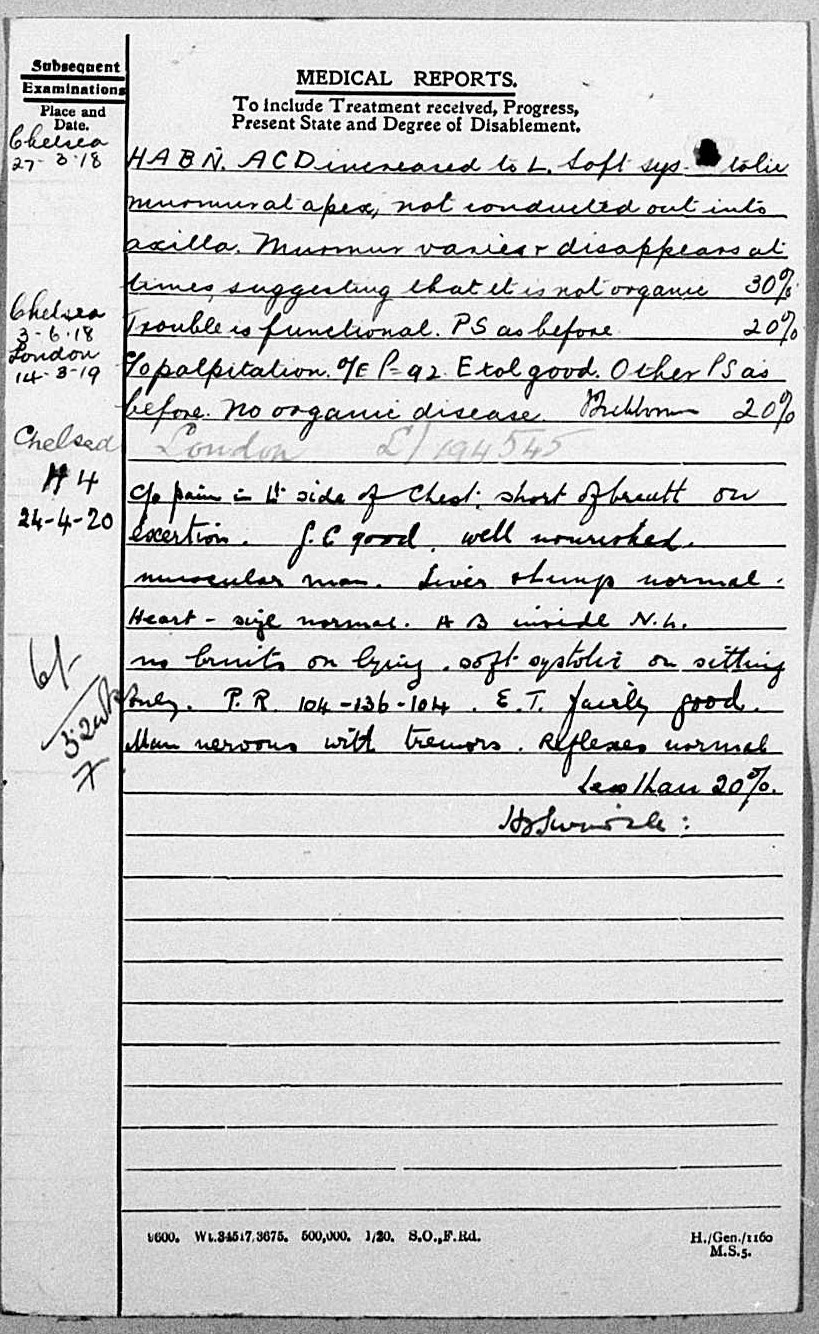 Subsequent
Examinations
Place and
Date.
MEDICAL REPORTS.
To include Treatment received, Progress,
Present State and Degree of Disablement.
Chelsea
27-3-18
HABN. ACD increased to L. Soft sys- tolic
murmur at apex, not conducted out into
axilla. Murmur varies + disappears at
times, suggesting that it is not organic 30%
Chelsea
3-6-18
Trouble is functional. PS as before 20%
London
14-3-19
c/o palpitation. O/E P=92. Extol good. Other PS as
before. No organic disease 20%
Chelsea
London L/194545
H 4
24-4-20
c/o pain in Lt side of Chest. short of breath on
exertion. G.C good. well nourished.
muscular man. Liver + lungs normal.
Heart - size normal. A B inside N.L.
no bruits on lying. soft systolic on sitting
only. P.R. 104-136-104. E.T. fairly good.
Man nervous with tremors. Reflexes normal
Less than 20%.
6/-
9600. Wt.34517/3675. 500,000. 1/20. S.O.,F.Rd.
H./Gen./1160
M.S.5.